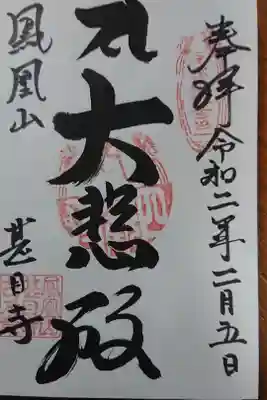 奉拝 令和二年二月五日
大悲殿
鳳凰山
甚目寺